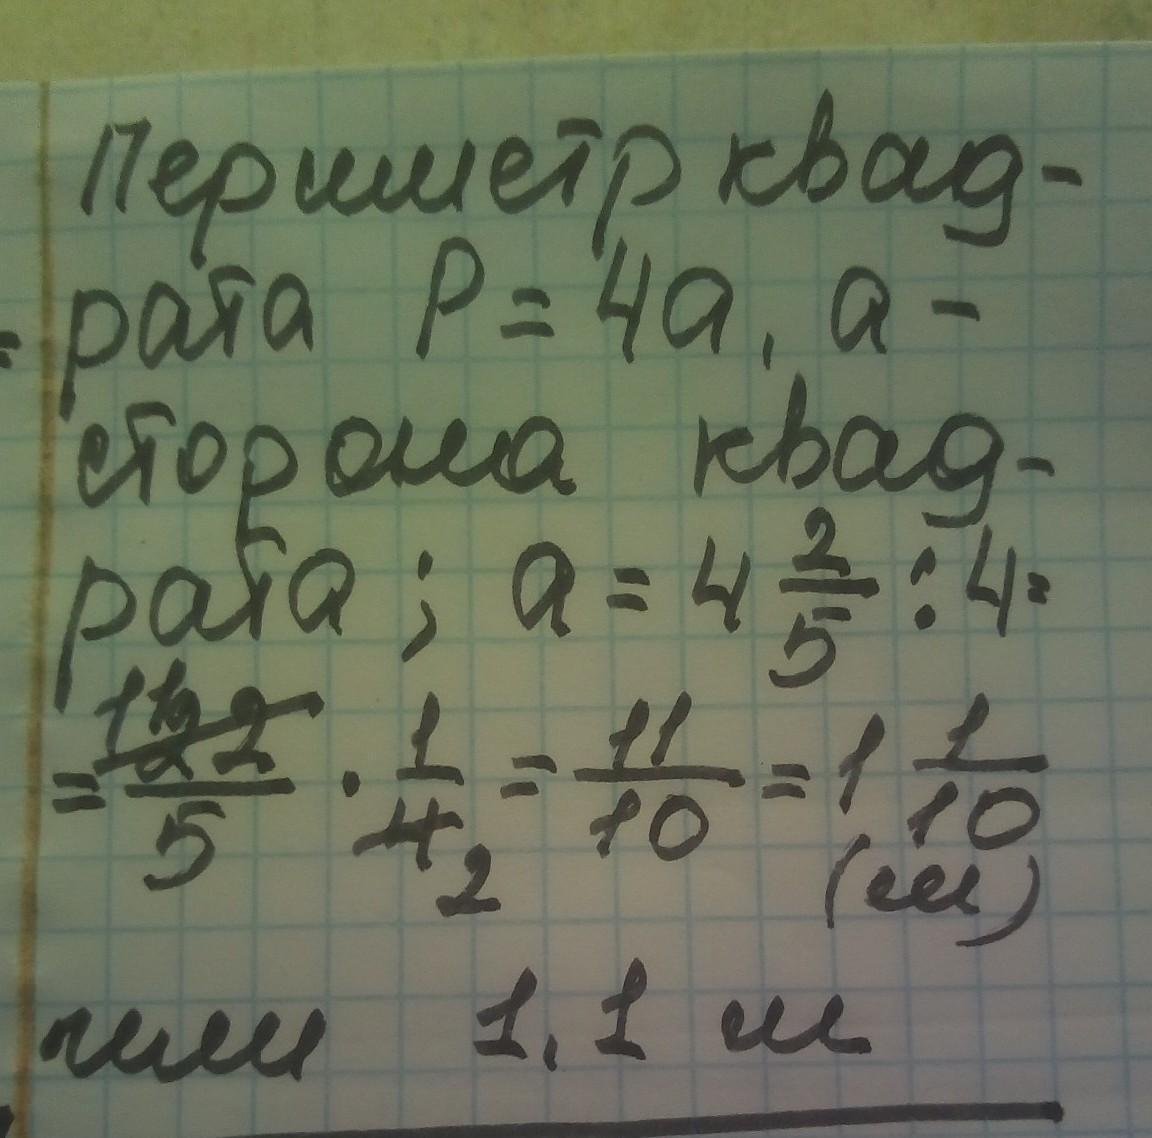 Периметр квад-
рата P = 4a, a -
сторона квад-
рата; a = 4 2/5 : 4 =
= 22/5 · 1/4 = 11/10 = 1 1/10
11 2
(м)
или 1,1 м